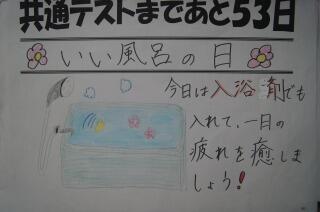 共通テストまであと53日
いい風呂の日
今日は入浴剤でも
入れて、一日の
疲れを癒しま
しょう!